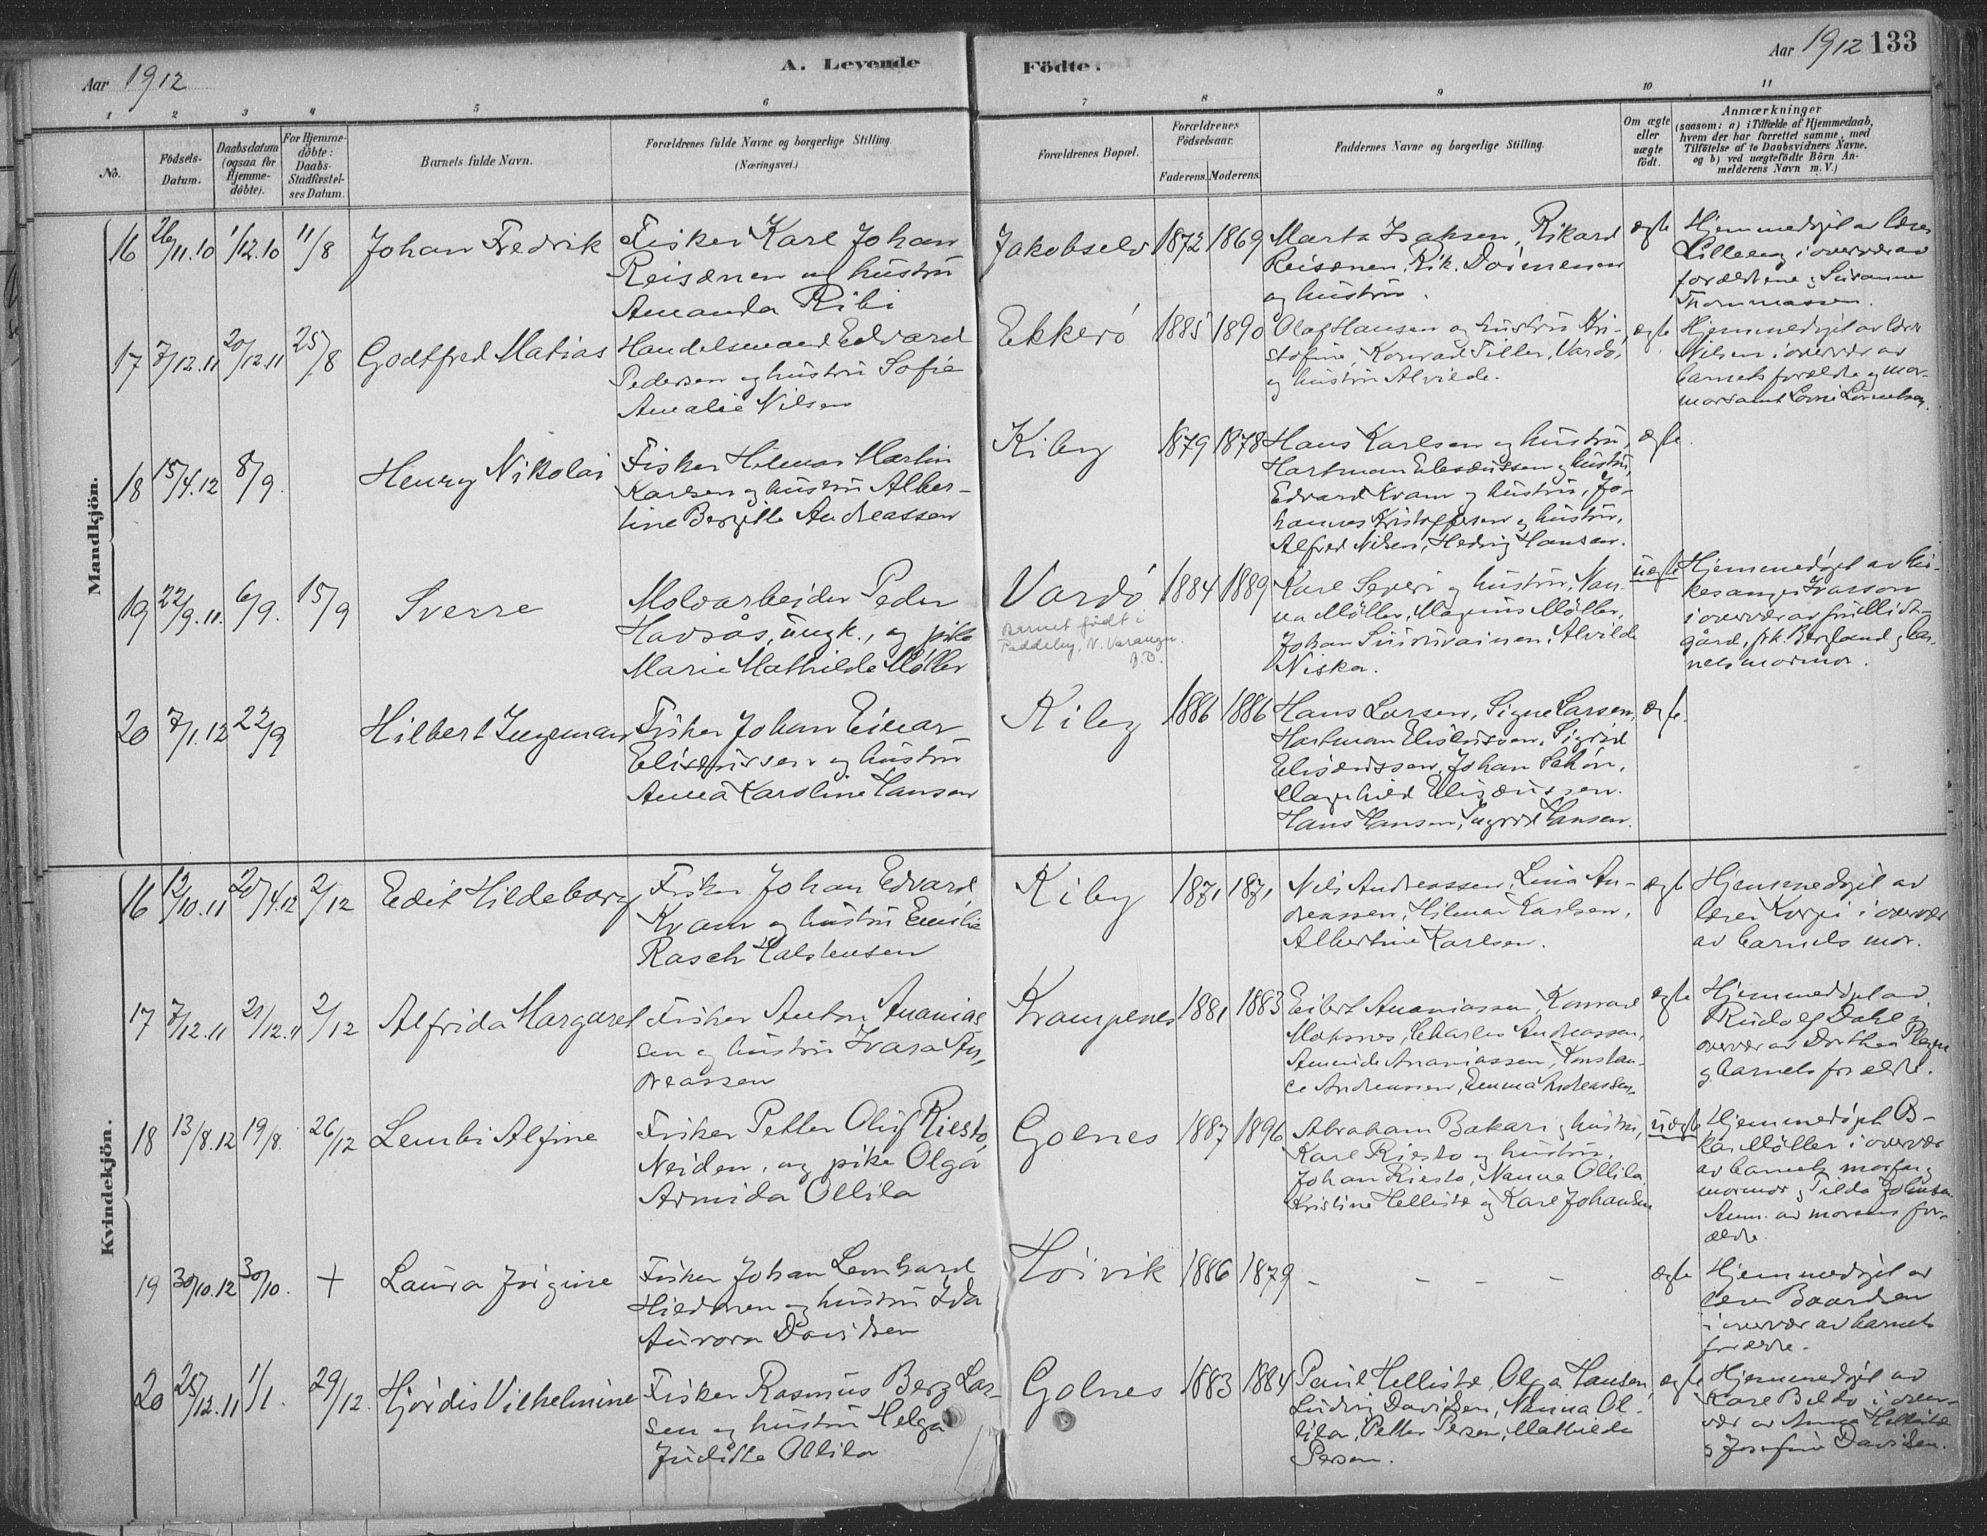 Aar 1912
A. Levende
Födte.
Aar 1912 133
1 2 3 4 5 6 7 8 9 10 11
No.
Födsels-Datum.
Daabsdatum (ogsaa for Hjemme-döbte).
For Hjemme-döbte: Daabs-Stadfæstel-ses Datum.
Barnets fulde Navn.
Forældrenes fulde Navne og borgerlige Stilling (Næringsvei.)
Forældrenes Bopæl.
Forældrenes Födselsaar.
Faderens. Moderens.
Faddernes Navne og borgerlige Stilling.
Om ægte eller uægte født.
Anmærkninger
(saasom: a) i Tilfælde af Hjemmedaab,
hvem der har forrettet samme, med
Tilföielse af to Daabsvidners Navne,
og b) ved uægtefödte Börn An-
melderens Navn m. V.)
Mandkjön.
16 26/11.10 1/12.10 11/8 Johan Fredrik
Fisker Karl Johan
Reisænen og hustru
Amanda Ribi
Jakobselv 1872 1869
Marta Isaksen, Rikard
Reisænen, Rik.
og hustru.
ægte
Hjemmedøpt av lærer
Lilleeng i overvær av
forældrene, Susanne
Thommassen.
17 7/12.11 20/12.11 25/8 Godtfred Matias
Handelsmand Edvard
Pedersen og hustru Sofie
Amalie Nilsen
Ekkerö 1885 1890
Olaf Hansen og hustru Kri-
stofine, Konrad Tiller, Vardö,
og hustru Alvilde.
ægte
Hjemmedøpt av lærer
Nilsen i overvær av
barnets forældre og mor-
mor samt
18 15/4.12 8/9. Henry Nikolai
Fisker Hilmar Martin
Karlsen og hustru Alber-
tine Bergitte Andreassen
Kiby 1879 1878
Hans Karlsen og hustru,
Hartman Eliseussen og hustru,
Edvard Kvam og hustru, Jo-
hannes Kristoffersen og hustru,
Alfred Nilsen, Hedvig Hansen.
ægte.
19 22/9.11. 6/9. 15/9 Sverre
Moloarbeider Peder
Havsås, ungk., og pike
Marie Mathilde Møller
Vardö
Barnet født i
Faddeby, N. Varanger.
1884 1889
Karl Seperi og hustru, Nan-
na Møller, Magnus Møller,
Johan Alvilde
Niska.
uægte
Hjemmedøpt av kir-
kesanger Ivarson
i overvær av fru Midt-
gård, frk. Bergland og bar-
nets mormor.
20 7/1.12 22/9 Hilbert Ingeman
Fisker Johan Einar
Eliseussen og hustru
Anna Karoline Hansen
Kiby 1886 1886
Hans Larsen, Signe Larsen,
Hartman Eliseussen, Sigrid
Eliseussen, Johan Schön,
Magnhild Eliseussen.
Hans Hansen, Ingrid Hansen.
ægte.
Kvindekjön.
16 12/10.11 20/4.12 2/12 Edit Hildeborg
Fisker Johan Edvard
Kvam og hustru Emilie
Rasch Halstensen
Kiby 1871 1871
Nils Andreassen, Lina An-
dreassen, Hilmar Karlsen,
Albertine Karlsen.
ægte
Hjemmedøpt av
lærer Korpi i overvær
av barnets mor.
17 7/12.11 21/12.11 2/12 Alfrida Margaret
Fisker Anton Ananias-
sen og hustru Ivara An-
dreassen
Krampenes 1881 1883
Eibert Ananiassen, Konrad
Moksnes, Charles Andreassen,
Amunde Ananiassen, Konstan-
ce Andreassen, Emma Andreassen.
ægte
Hjemmedøpt av
Rudolf Dahl i
overvær av Dorthea
og barnets forældre.
18 13/8.12 19/8. 26/12 Lembi Alfine
Fisker Petter Oluf Riesto,
Neiden, og pike Olga
Armida Ollila
Golnes 1887 1896
Abraham Bakari og hustru,
Karl Riesto og hustru,
Johan Riesto, Nanna Ollila,
Kristine Hellistæ og Karl Johansen
uægte
Hjemmedøpt Os-
kar Møller i overvær
av barnets morfar og
mormor og Tilda Johnsen.
Anm. av morens for-
ældre.
19 30/10.12 30/10. + Laura Jørgine
Fisker Johan Lenhard
og hustru Ida
Aurora Davidsen
Höivik 1886 1879
- - - -
ægte
Hjemmedøpt av
lærer Baardsen
i overvær av barnets
forældre.
20 25/12.11 1/1. 29/12. Hjördis Vilhelmine
Fisker Rasmus Berg Lar-
sen og hustru Helga
Juditte Ollila
Golnes 1883 1884
Paul Hellistæ, Olga Hansen,
Ludvig Davidsen, Nanna Ol-
lila, Petter Persen, Mathilde
Persen.
ægte
Hjemmedøpt av
Karl Beldo i over-
vær av Anna Hellistæ
og Josefine Davidsen.